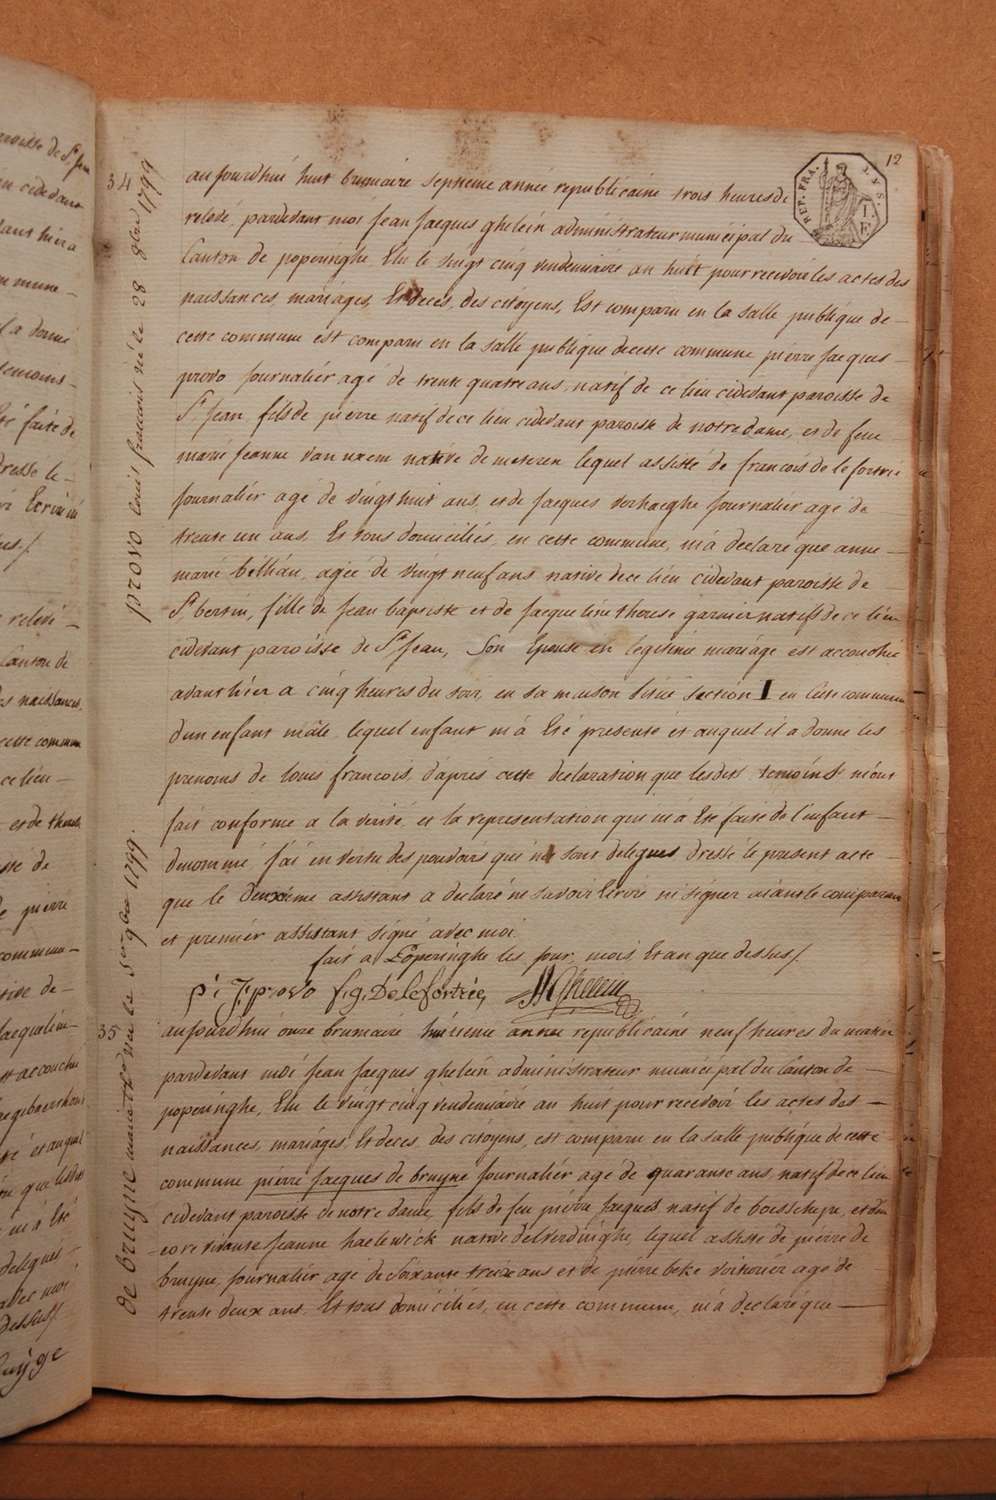 12
REP. FRA.
34
aujourdhui huit brumaire septieme année republicaine trois heures de
relevé, pardevant moi Jean Jacques ghelein administrateur municipal du
Canton de poperinghe Elu le vingt cinq vendemiaire an huit pour recevoir les actes des
naissances, mariages, Et deces, des citoyens, Est comparu en la salle publique de
cette commune est comparu en la salle publique de cette commune pierre Jacques
provo journalier agé de trente quatre ans, natif de ce lieu cidevant paroisse de
St Jean fils de pierre natif de ce lieu cidevant paroisse de notre dame, et de feue
marie jeanne van uxem native de meteren lequel assisté de francois de le fortrie
journalier agé de vingt huit ans, et de Jacques verhaeghe journalier agé de
trente un ans, Et tous domiciliés, en cette commune, m'a declaré que anne
marie belliau, agée de vingt neuf ans native de ce lieu cidevant paroisse de
St bertin, fille de jean baptiste et de jacqueline therese garnier natifs de ce lieu
cidevant paroisse de St Jean, Son Epouse en legitime mariage est accouchée
avant hier a cinq heures du soir, en sa maison située section I en cette commune
d'un enfant mâle, lequel enfant m'a Eté presenté et auquel il a donné les
prenoms de louis francois, d'après cette declaration que lesdits temoins m'ont
fait conforme a la verité, et la representation qui m'a Eté faite de l'enfant
denommé j'ai en vertu des pouvoirs qui me sont delegues dressé le present acte
que le deuxième assistant a declaré ne savoir Ecrire ni signer aiant le comparant
et premier assistant signé avec moi.
fait a Poperinghe les jour, mois, Et an que dessus/.
p: J: provo f.g. De le fortrie, JJ Ghelein
provo louis francois né le 28 8bre 1799
35
aujourdhui onze brumaire huitieme année republicaine neuf heures du matin
pardevant moi Jean Jacques ghelein administrateur municipal du Canton de
poperinghe, Elu le vingt cinq vendemiaire an huit pour recevoir les actes des
naissances, mariages, Et deces, des citoyens, est comparu en la salle publique de cette
commune pierre jacques de bruyne journalier agé de quarante ans, natif de ce lieu
cidevant paroisse de notre dame, fils de feu pierre Jacques natif de boeschepe, et d'en
core vivante Jeanne haelewick native d'elverdinghe, lequel assisté de pierre de
bruyne, journalier agé de soixante treize ans et de pierre beke voiturier agé de
trente deux ans, Et tous domiciliés, en cette commune, m'a declaré que